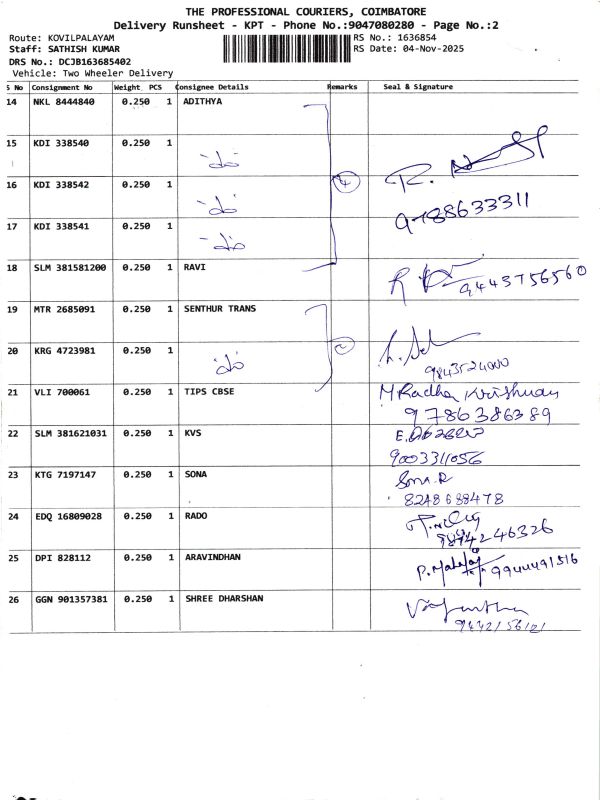 THE PROFESSIONAL COURIERS, COIMBATORE
Delivery Runsheet - KPT - Phone No.:9047080280 - Page No.:2
Route: KOVILPALAYAM RS No.: 1636854
Staff: SATHISH KUMAR RS Date: 04-Nov-2025
DRS No.: DCJB163685402
Vehicle: Two Wheeler Delivery
S No Consignment No Weight PCS Consignee Details Remarks Seal & Signature
14 NKL 8444840 0.250 1 ADITHYA
15 KDI 338540 0.250 1
16 KDI 338542 0.250 1 4
9788633311
17 KDI 338541 0.250 1
18 SLM 381581200 0.250 1 RAVI
9443756560
19 MTR 2685091 0.250 1 SENTHUR TRANS
20 KRG 4723981 0.250 1 2
9843524000
21 VLI 700061 0.250 1 TIPS CBSE M Radha Krishnan
9786386389
22 SLM 381621031 0.250 1 KVS
9003311056
23 KTG 7197147 0.250 1 SONA Sona.R
8248688478
24 EDQ 16809028 0.250 1 RADO
25 DPI 828112 0.250 1 ARAVINDHAN 9944491516
26 GGN 901357381 0.250 1 SHREE DHARSHAN